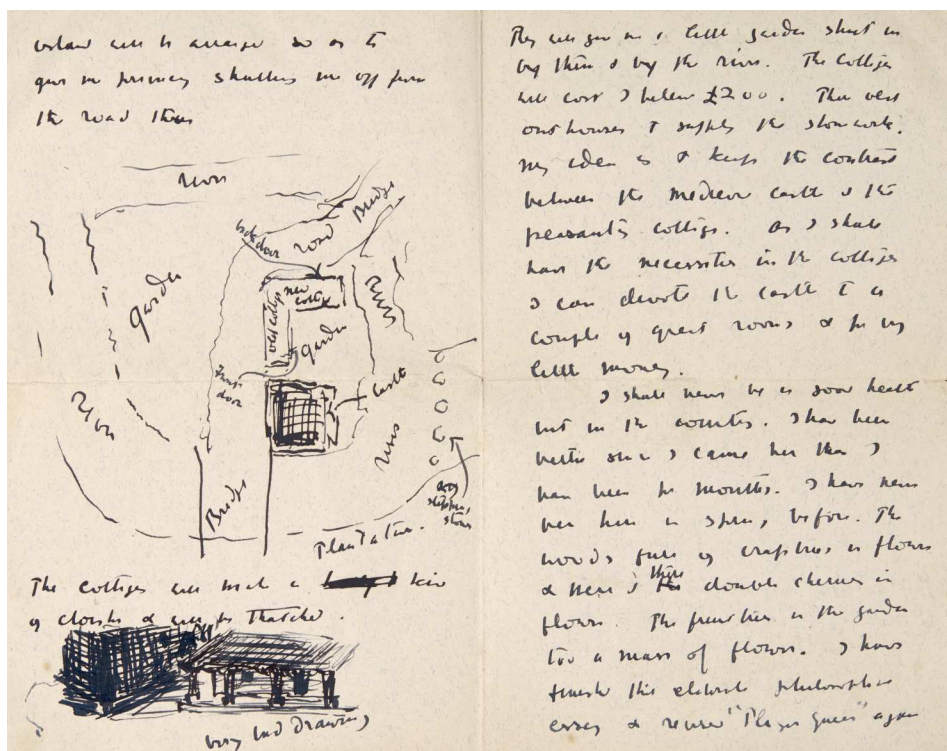 will be arranged so as to
give me privacy shutting me off from
the road thus
River
Road
Bridge
back door
garden
new cottage
old cottage
garden
River
front door
castle
River
River
Bridge
stepping stones
Plantation.
The cottages will make a kind
of cloister & will be thatched.
very bad drawing
They will give me a little garden shut in
by these & by the river. The cottages
will cost I believe £200. The old
outhouses to supply the stonework.
My idea is to keep the contrast
between the medieval castle & the
peasants cottage. As I shall
have the necessities in the cottages
I can devote the castle to a
couple of great rooms & for very
little money.
I shall never be in good health
but in the country. I have been
better since I came here than I
have been for months. I have never
been here in spring before. The
woods full of crab trees in flower
& here & there double cherries in
flower. The fruit trees in the garden
too a mass of flowers. I have
finished the philosophic
essay & revised "Player Queen" again